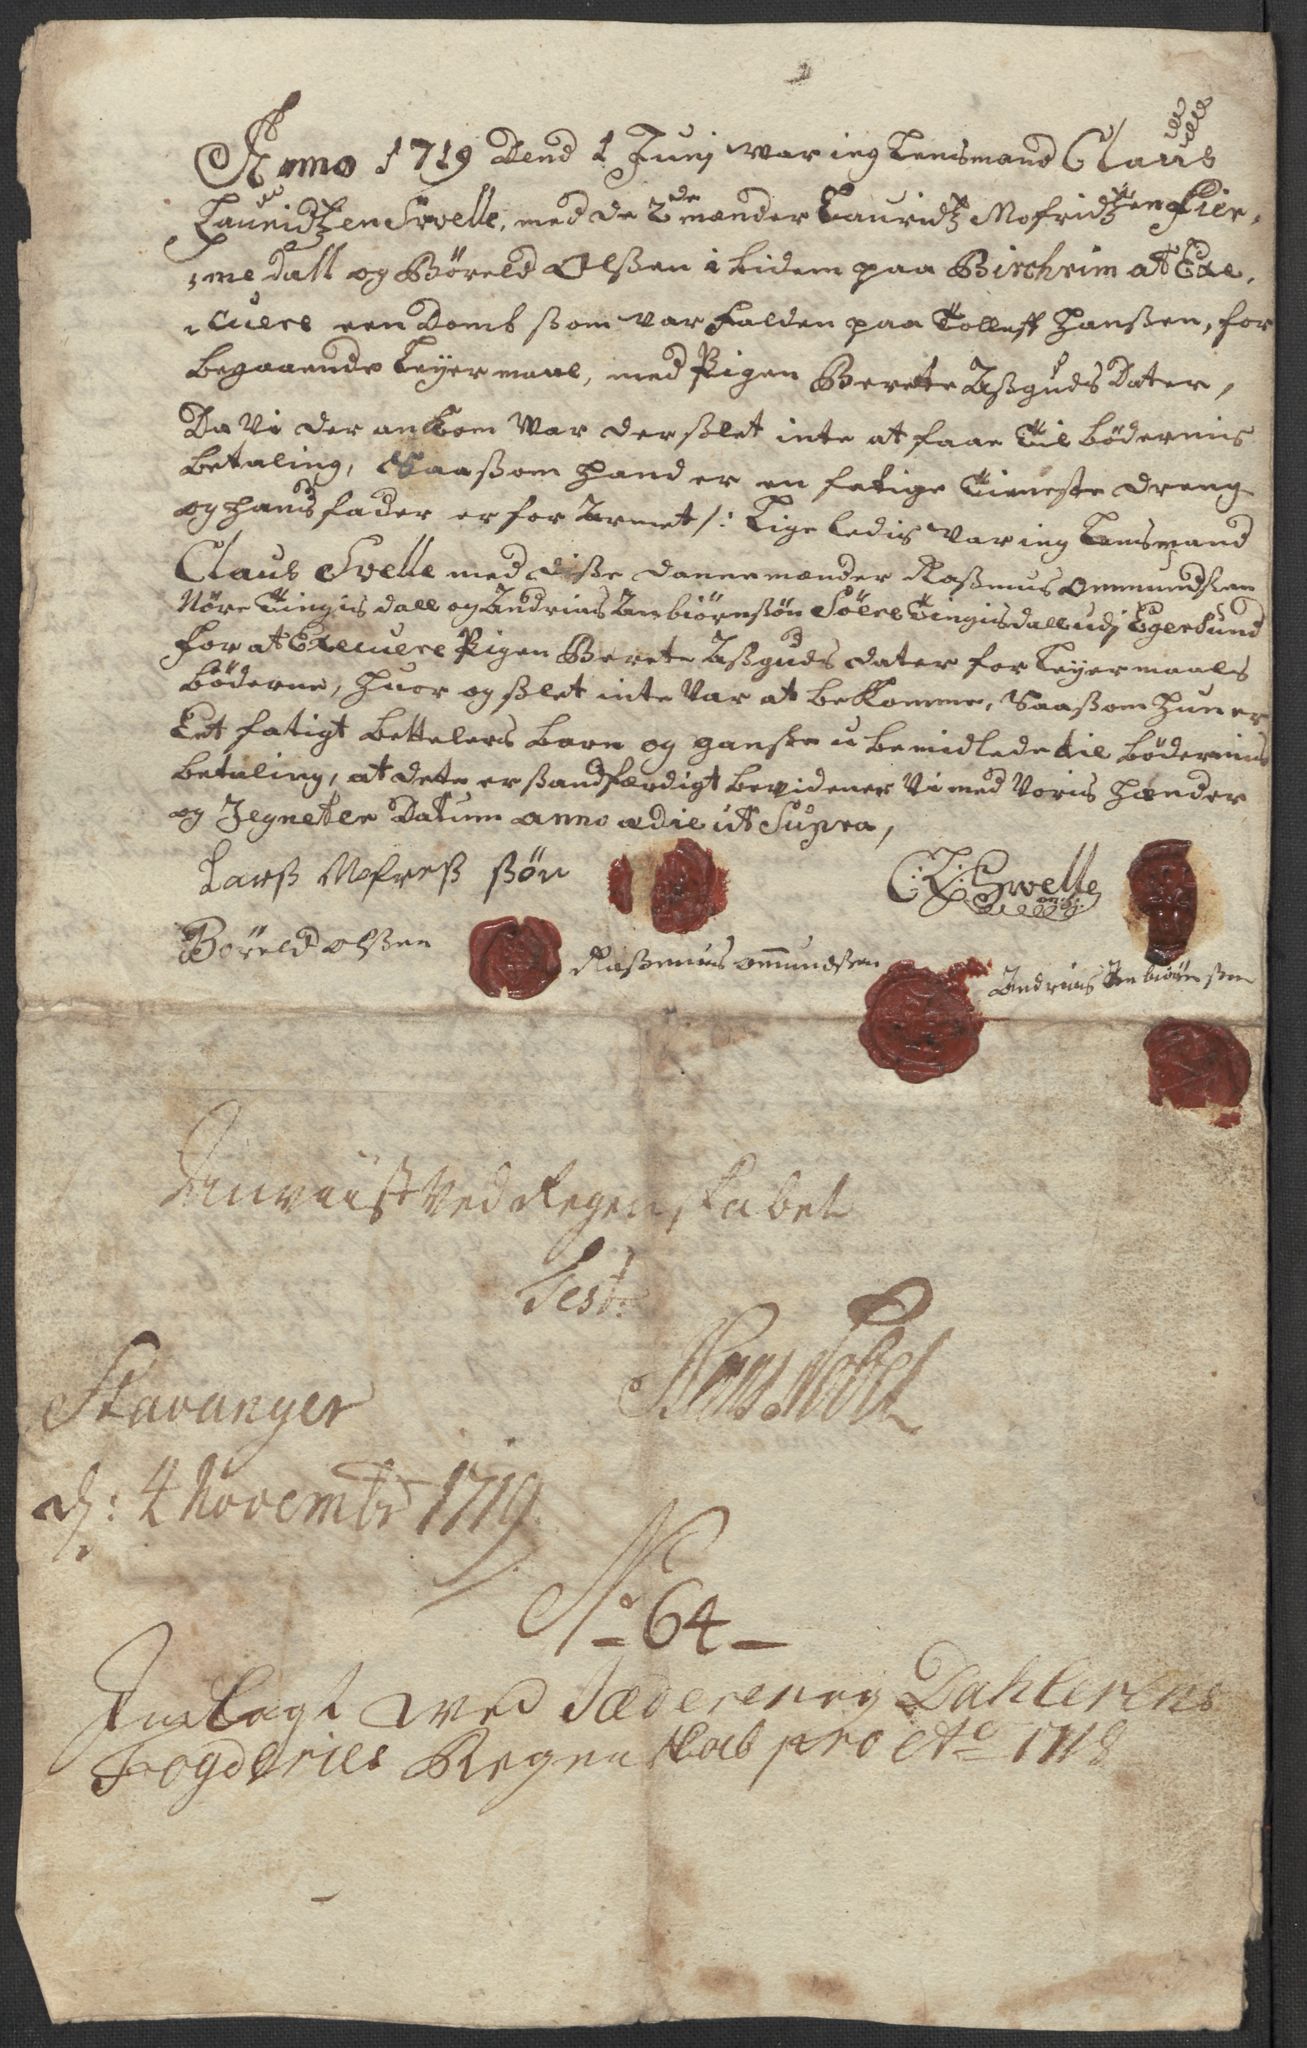 Anno 1719 Dend 1 Junj war ieg Lensmand Claus
Lauridtzen Svelle, med de 2de mænder Lauridtz Mofridtzen Fier,
,me dall og Børeld Olßen ibidem paa Birchrim at Exe,
,cuere een Domb ßom var falden paa Tolleff Hanßen, for
begaaende Leyermaal, med Pigen Berete Aßguds Dater,
Da Vi der ankom War der slet inte at faae til bødernis
betaling, Saaßom hand er en fatige tieneste dreng
og hans fader er for Armet /: Lige ledis var ieg Lensmand
Claus Svelle med diße dannemænder Raßmus Ommundßen
Nøre Tingisdall og Andrias Anbiørnßøn Søere Tengisdall udj Egersund
for at Execuere Pigen Berete Aßguds dater for Leyermaals
bøderne, huor og slet inte Var at bekomme, Saaßom hun er
Eet fatigt bettelers barn og ganske u bemidlede til bødernis
betaling, at dete er ßandfærdigt bevidener Vi med Voris hænder
og Zegneter Datum anno & die ut Supra,
Larß Mofreß ßøn
C: L: Svelle
Børeld olßen
Raßmus ommundßen
Andrias Anbiørnßen
Anviist Ved Regenskabet
Test:
Stavanger
d: 4 Novembr 1719
No 64
Indlagt ved Jæderen og Dahlerens
Fogderies Regenskab pro Ao 1718